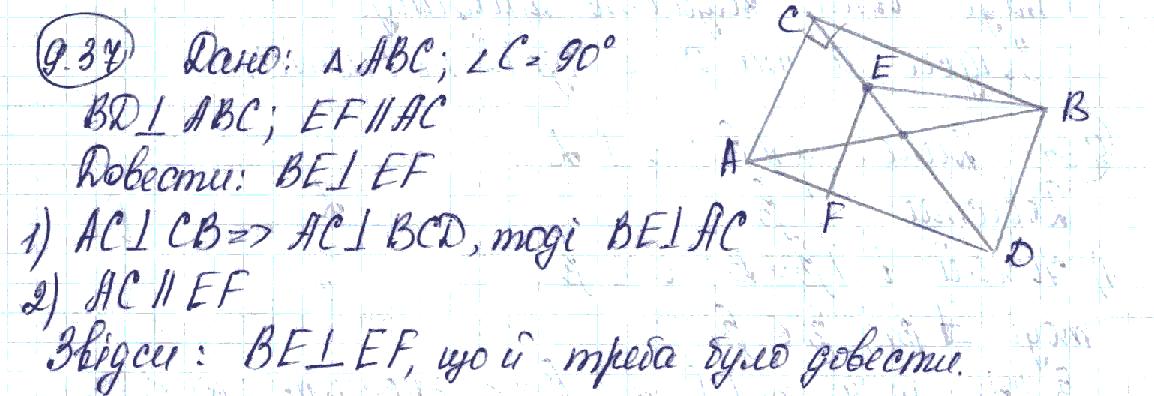 9.37 Дано: △ ABC; ∠C = 90°
BD⊥ ABC; EF ∥ AC
Довести: BE⊥ EF
1) AC⊥ CB => AC⊥ BCD, тоді BE⊥AC
2) AC ∥ EF
Звідси: BE⊥EF, що й треба було довести.
C
E
B
A
F
D